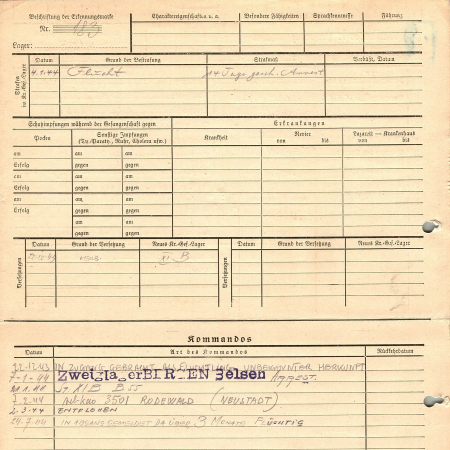 Beschriftung der Erkennungsmarke
Nr. 183
Charaktereigenschaften u. a.
Besondere Fähigkeiten
Sprachkenntnisse
Führung
Lager:
Strafen im Kr.-Gef.-Lager
Datum
Grund der Bestrafung
Strafmaß
Verbüßt, Datum
4.1.44 Flucht 14 Tage gesch. Arrest
Schutzimpfungen während der Gefangenschaft gegen
Erkrankungen
Pocken
Sonstige Impfungen
(Ty.-Paraty., Ruhr, Cholera usw.)
Krankheit
Revier
von bis
Lazarett — Krankenhaus
von bis
am am am
Erfolg gegen gegen
am am am
Erfolg gegen gegen
am am am
Erfolg gegen gegen
am am
gegen gegen
Versetzungen
Datum
Grund der Versetzung
Neues Kr.-Gef.-Lager
Versetzungen
Datum
Grund der Versetzung
Neues Kr.-Gef.-Lager
XI B
Kommandos
Datum
Art des Kommandos
Rückkehrdatum
22.12.43 IN ZUGANG GEBRACHT ALS FLÜCHTLING UNBEKANNTER HERKUNFT
7-1-44 Zweiglager BERGEN Belsen Arrest.
XI B
7.2.44 Arb.kdo 3501 RODEWALD (NEUSTADT)
2-3-44 ENTFLOHEN
IN ABGANG GEMELDET DA ÜBER 3 MONATE FLÜCHTIG